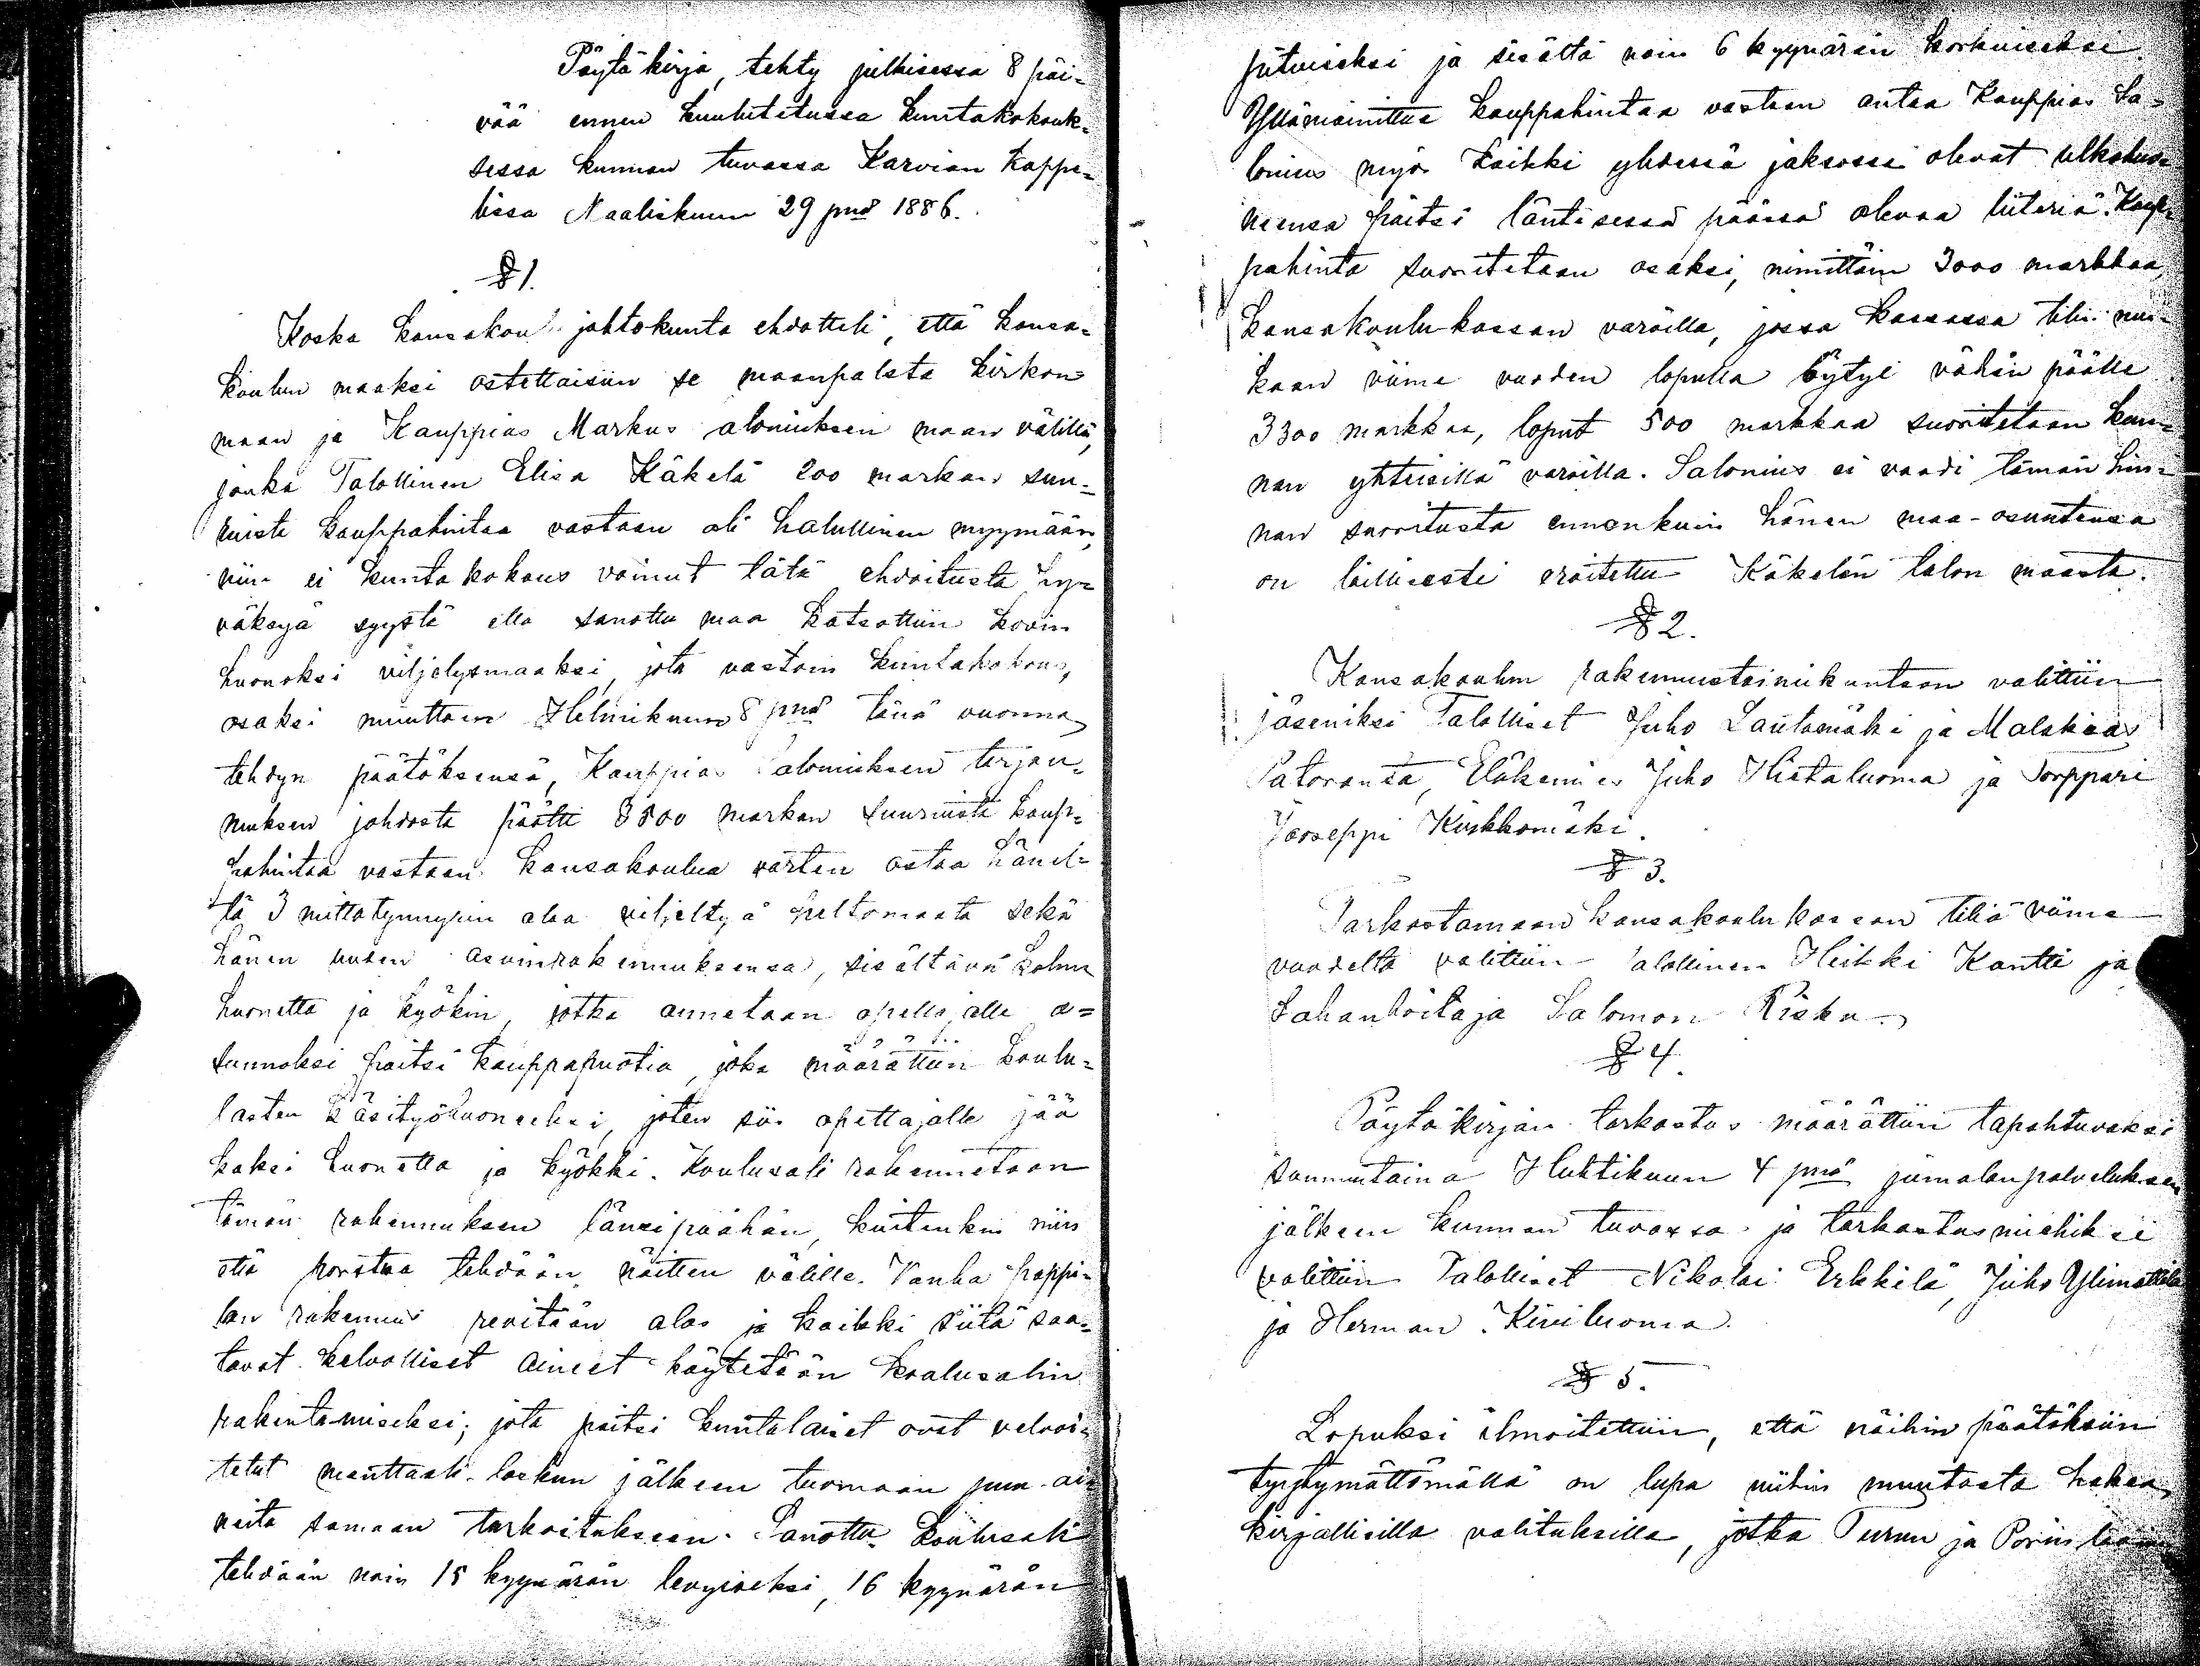 Pöytäkirja, tehty julkisessa 8 päi=
vää ennen kuulutetussa kuntakokouk=
sessa kunnan tuvassa Karvian kappe=
lissa Maaliskuun 29 pnä 1886.
§ 1.
Koska kansakoulu johtokunta ehdotteli, että kansa=
koulun maaksi ostettaisiin se maanpalsta kirkon
maan ja Kauppias Markus Saloniuksen maan välillä,
jonka Talollinen Elisa Käkelä 200 markan suu=
ruista kauppahintaa vastaan oli halullinen myymään,
niin ei kuntakokous voinut tätä ehdoitusta hy=
väksyä syystä että sanottu maa katsottiin kovin
huonoksi viljelysmaaksi, jota vastoin kuntakokous,
osaksi muuttaen Helmikuun 8 pnä tänä vuonna
tehdyn päätöksensä, Kauppias Saloniuksen tarjou=
muksen johdosta päätti 3500 markan suuruista kaup=
pahintaa vastaan kansakoulua varten ostaa hänel=
tä 3 mittatynnyrin alaa viljeltyä peltomaata sekä
hänen uuden asuinrakennuksensa, sisältävä kolme
huonetta ja kyökin, jotka annetaan opettajalle a=
sunnoksi paitsi kauppapuotia, joka määrättiin koulu=
lasten käsityöhuoneeksi, joten siis opettajalle jää
kaksi huonetta ja kyökki. Koulusali rakennetaan
tämän rakennuksen länsipäähän, kuitenkin niin
että porstua tehdään näitten välille. Vanha pappi=
lan rakennus revitään alas ja kaikki siitä saa=
tavat kelvolliset aineet käytetään koulusalin
rakentamiseksi; jota paitsi kuntalaiset ovat velvoi=
tetut manttaali-luvun jälkeen tuomaan puu-ai=
neita samaan tarkoitukseen. Sanottu koulusali
tehdään noin 15 kyynärän levyiseksi, 16 kyynärän
pituiseksi ja sisältä noin 6 kyynärän korkuiseksi.
Yllämainittua kauppahintaa vastaan antaa Kauppias Sa=
lonius myös kaikki yhdessä jaksossa olevat ulkohuo=
neensa paitsi läntisessä päässä olevaa liiteriä. Kaup=
pahinta suoritetaan osaksi, nimittäin 3000 markkaa,
kansakoulu-kassan varoilla, jossa kassassa tilin mu=
kaan viime vuoden lopulla löytyi vähän päälle
3300 markkaa, loput 500 markkaa suoritetaan kun=
nan yhteisillä varoilla. Salonius ei vaadi tämän hin=
nan suoritusta ennenkuin hänen maa-osuutensa
on laillisesti eroitettu Käkelän talon maasta.
§ 2.
Kansakoulun rakennustoimikuntaan valittiin
jäseniksi Talolliset Juho Lautamäki ja Malakias
Patoranta, Eläkemies Juho Hietaluoma ja Torppari
Jooseppi Kirkkomäki.
§ 3.
Tarkastamaan kansakoulu kassan tiliä viime
vuodelta valittiin Talollinen Heikki Kantti ja
Lahanhoitaja Salomon Risku.
§ 4.
Pöytäkirjan tarkastus määrättiin tapahtuvaksi
sunnuntaina Huhtikuun 4 pnä jumalanpalveluksen
jälkeen kunnan tuvassa ja tarkastusmiehiksi
valittiin Talolliset Nikolai Erkkilä, Juho Ylimattila
ja Herman Kiviluoma.
§ 5.
Lopuksi ilmoitettiin, että näihin päätöksiin
tyytymättömällä on lupa niihin muutosta hakea
kirjallisilla valituksilla, jotka Turun ja Porin läänin